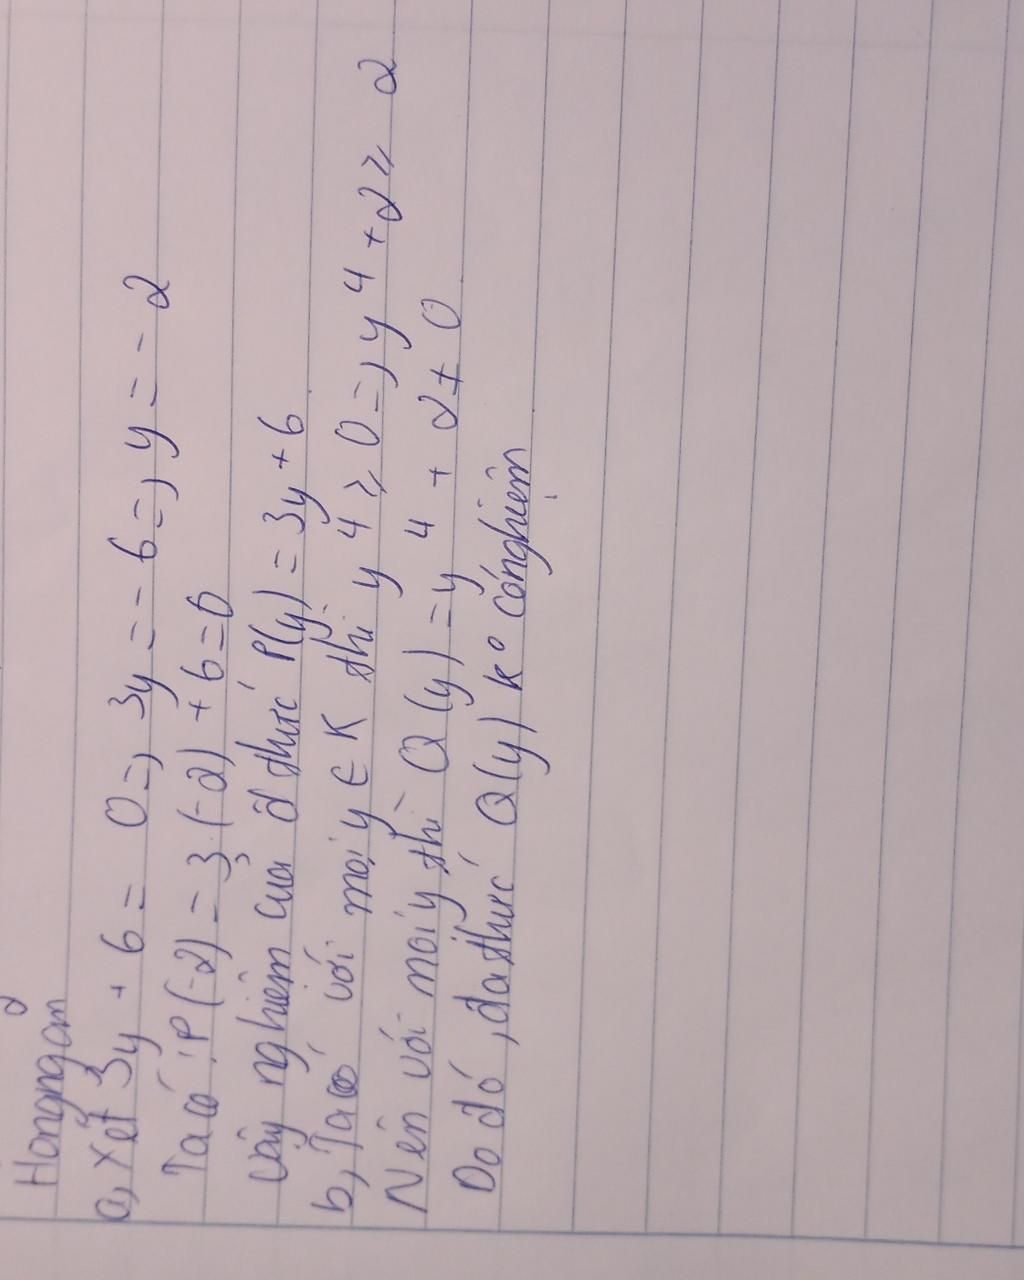 Hongngan
a, xét 3y + 6 = 0 =, 3y = - 6 =, y = - 2
Ta có : P(-2) = 3.(-2) + 6 = 0
Vậy nghiệm của đ thức P(y) = 3y + 6
b, Ta có với mọi y ∈ K thi y 4 ≥ 0 =, y 4 + 2 ≥ 2
Nên với mọi y thì Q(y) = y 4 + 2 ≠ 0
Do đó , đa thức Q(y) kº cónghiệm